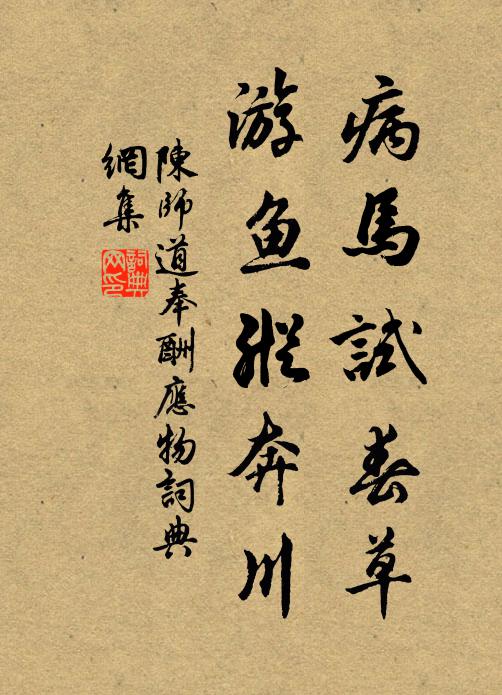 病馬試春草
游鱼縱奔川
陳師道奉酬應物詞典
網集
詞典
网印